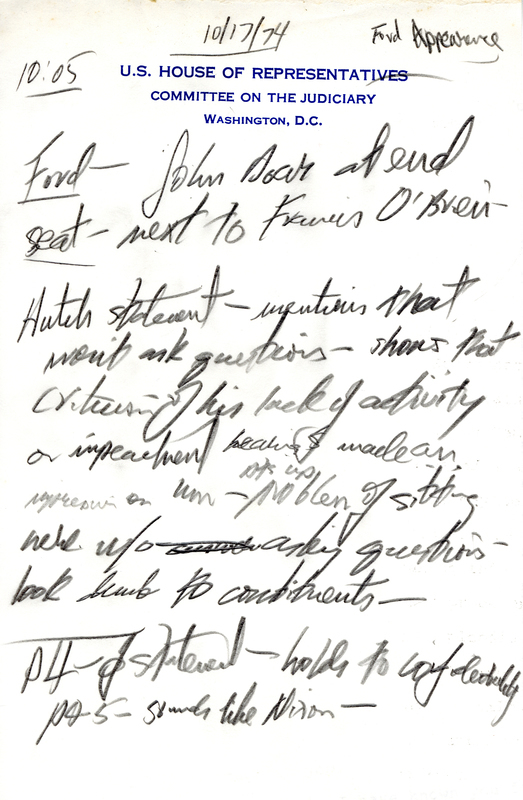 10/17/74
Ford Appearance
10:05
U.S. HOUSE OF REPRESENTATIVES
COMMITTEE ON THE JUDICIARY
WASHINGTON, D.C.
Ford — John Doar at end
seat — next to Francis O'Brien
Hutch statement — mentions that
won't ask questions — shows that
criticism of his lack of activity
or impeachment hearings made an
impression on him — sets up problem of sitting
here w/o asking questions —
look dumb to constituents —
p4 — of statement — holds to confidentiality
p4-5 — sounds like Nixon —